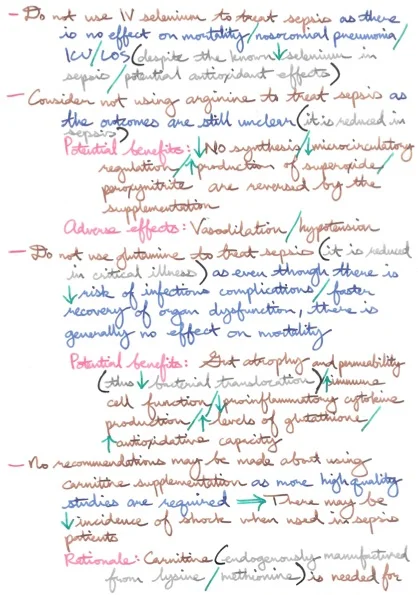 — Do not use IV selenium to treat sepsis as there
is no effect on mortality/nosocomial pneumonia/
ICU/LOS (despite the known ↓ selenium in
sepsis/potential antioxidant effects)
— Consider not using arginine to treat sepsis as
the outcomes are still unclear (it is reduced in
sepsis)
Potential benefits: ↓ No synthesis/↓ microcirculatory
regulation/↑ production of superoxide/
peroxynitrite are reversed by the
supplementation
Adverse effects: Vasodilation/hypotension
— Do not use glutamine to treat sepsis (it is reduced
in critical illness) as even though there is
↓ risk of infectious complications/faster
recovery of organ dysfunction, there is
generally no effect on mortality
Potential benefits: Gut atrophy and permeability
(thus ↓ bacterial translocation)/↑ immune
cell function/↓ proinflammatory cytokine
production/↑ levels of glutathione/
↑ antioxidative capacity
— No recommendations may be made about using
carnitine supplementation as more high quality
studies are required ⇒ There may be
↓ incidence of shock when used in sepsis
patients
Rationale: Carnitine (endogenously manufactured
from lysine/methionine) is needed for